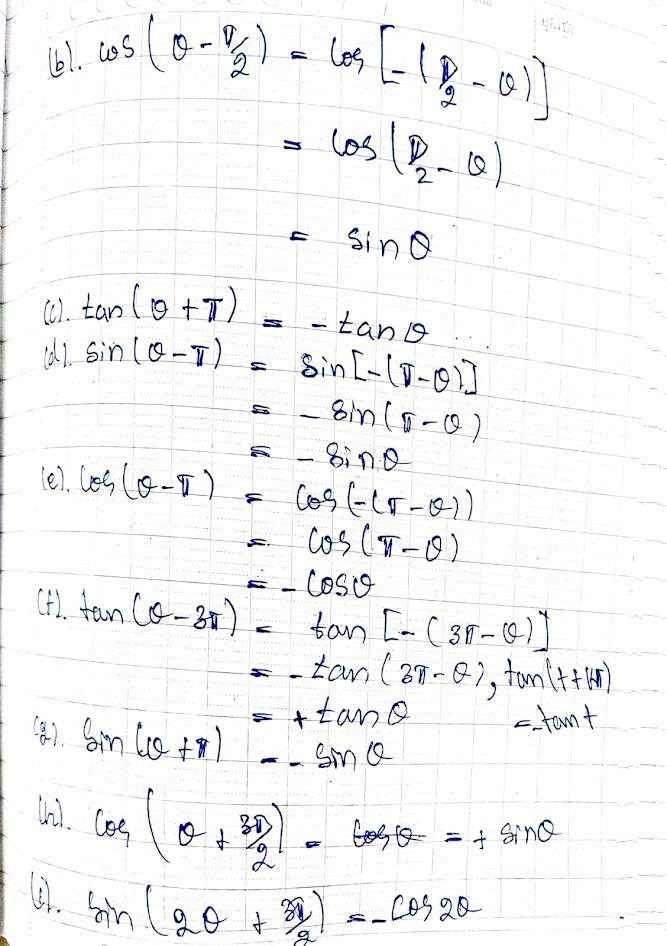 (b). cos (θ - π/2) = cos [-(π/2 - θ)]
= cos (π/2 - θ)
= sin θ
(c). tan (θ + π) = - tan θ ...
(d). sin (θ - π) = sin [-(π-θ)]
= - sin (π - θ)
= - sin θ
(e). cos (θ - π) = cos (-(π - θ))
= cos (π - θ)
= - cos θ
(f). tan (θ - 3π) = tan [-(3π - θ)]
= - tan (3π - θ), tan (t + kπ)
= + tan θ = tan t
(g). sin (θ + π) = - sin θ
(h). cos (θ + 3π/2) = cos θ = + sin θ
(i). sin (2θ + 3π/2) = - cos 2θ